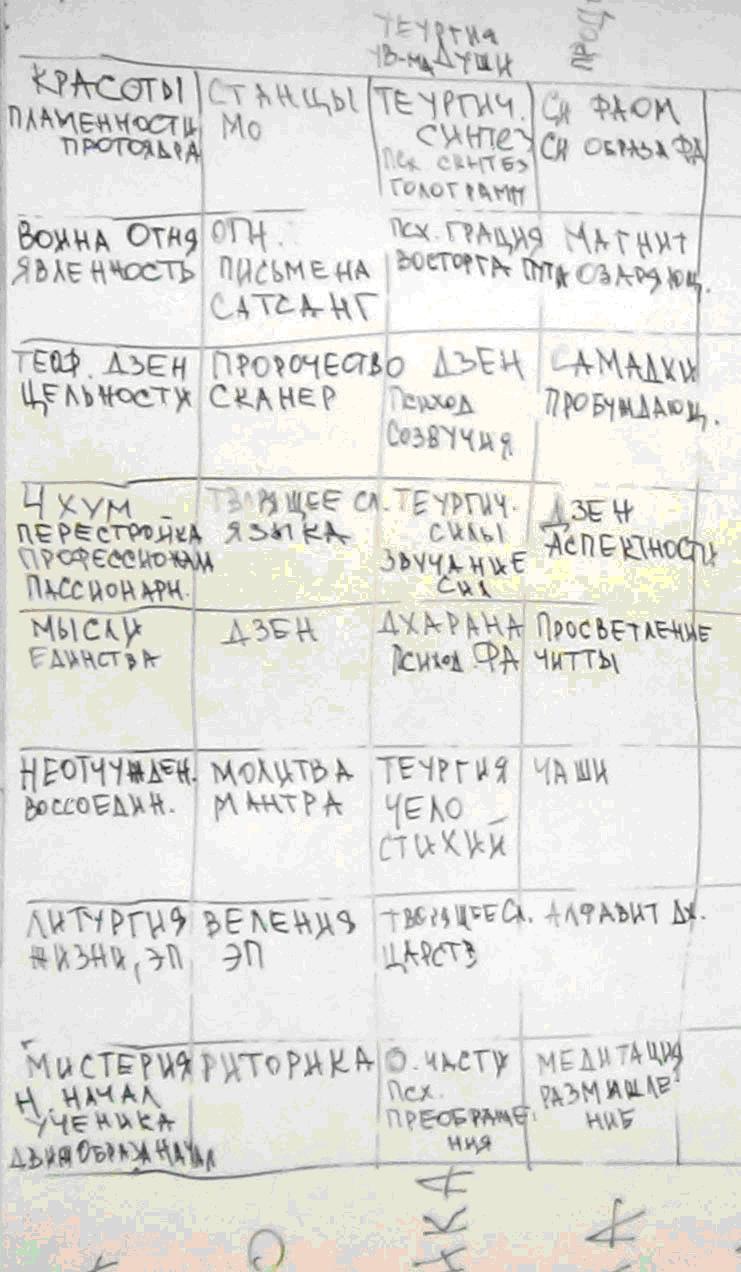 ТЕУРГИЯ
УВ-МА ДУШИ
КРАСОТЫ
ПЛАМЕННОСТИ
ПРОТОЯДРА
СТАНЦЫ
МО
ТЕУРГИЧ.
СИНТЕЗ
ПСХ СИНТЕЗ
ГОЛОГРАММ
СИ ФАОМ
СИ ОБРАЗА ФА
ВОИНА ОГНЯ
ЯВЛЕННОСТЬ
ОГН.
ПИСЬМЕНА
САТСАНГ
ПСХ. ГРАЦИЯ
ВОСТОРГА
МАГНИТ
ПУТА ОЗАРЯЮЩ.
ТЕОФ. ДЗЕН
ЦЕЛЬНОСТИ
ПРОРОЧЕСТВО
СКАНЕР
ДЗЕН
ПСИХОД
СОЗВУЧИЯ
САМАДХИ
ПРОБУЖДАЮЩ.
4 ХУМ
ПЕРЕСТРОЙКА
ПРОФЕССИОНАЛИ
ПАССИОНАРН.
ТВОРЯЩЕЕ СЛ.
ЯЗЫКА
ТЕУРГИЧ.
СИЛЫ
ЗВУЧАНИЕ
СИЛ
ДЗЕН
АСПЕКТНОСТИ
МЫСЛИ
ЕДИНСТВА
ДЗЕН
ДХАРАНА
ПСИХОД ФА
ПРОСВЕТЛЕНИЕ
ЧИТТЫ
НЕОТЧУЖДЕН.
ВОССОЕДИН.
МОЛИТВА
МАНТРА
ТЕУРГИЯ
ЧЕЛО
СТИХИЙ
ЧАШИ
ЛИТУРГИЯ
ЖИЗНИ, ЭП
ВЕЛЕНИЯ
ЭП
ТВОРЯЩЕЕ СЛ.
ЦАРСТВ
АЛФАВИТ ДХ.
МИСТЕРИЯ
Н. НАЧАЛ
УЧЕНИКА
ДВИЖ ОБРАЗА НАЧАЛ
РИТОРИКА
О. ЧАСТИ
ПСХ.
ПРЕОБРАЖЕ
НИЯ
МЕДИТАЦИЯ
РАЗМЫШЛЕ
НИЕ